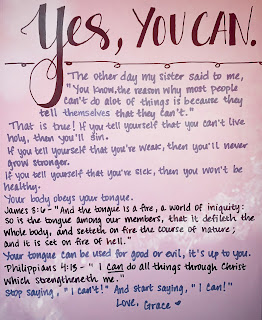 Yes, YOU CAN.
The other day my sister said to me,
"You know, the reason why most people
can't do alot of things is because they
tell themselves that they can't."
That is true! If you tell yourself that you can't live
holy, then you'll sin.
If you tell yourself that you're weak, then you'll never
grow stronger.
If you tell yourself that you're sick, then you won't be
healthy.
Your body obeys your tongue.
James 3:6 - "And the tongue is a fire, a world of iniquity:
So is the tongue among our members, that it defileth the
whole body, and setteth on fire the course of nature;
and it is set on fire of hell."
Your tongue can be used for good or evil, it's up to you.
Philippians 4:13 - "I can do all things through Christ
which strengtheneth me."
Stop saying, "I can't!" And start saying, "I Can!"
Love, Grace ♥